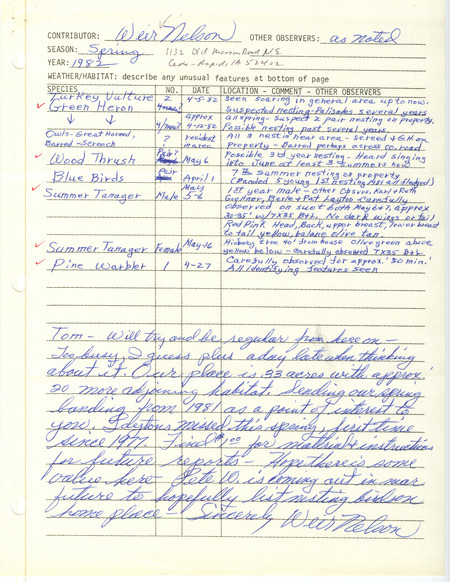 CONTRIBUTOR: Weir Nelson OTHER OBSERVERS: as noted
SEASON: Spring 1132 Old Marion Road N.E.
YEAR: 1982 Cedar Rapids, IA 52402
WEATHER/HABITAT: describe any unusual features at bottom of page
SPECIES NO. DATE LOCATION - COMMENT - OTHER OBSERVERS
Turkey Vulture 2 4-5-82 Seen soaring in general area up to now.
Green Heron Suspected nesting - Palisades several years
approx all spring - Suspect 2 pair nesting on property.
4/more 4-12-82 Possible nesting past several years.
Owls - Great Horned, ? resident All 3 nest in near area - Screech & G.H. on
Barred - Screech in area Property - Barred perhaps across co. road
Wood Thrush Pair? May 6 Possible 3rd year nesting - Heard singing
into June at least 3 summers now
Blue Birds Pair April 1 7th Summer nesting on property
(Banded 5 young 1st nesting All all fledged)
Summer Tanager Male May 5-6 1st year male - Other Obsvrs. Karl & Ruth
observed on suet both May 6+7, approx
30-35' w/7x35 Bin. No dark wings or tail
Red Pink Head, Back, upper breast, lower breast
to tail yellow, balance olive tan.
Summer Tanager Female May-16 Hickory tree 40' from house Olive green above
yellow below - Carefully observed 7x35 Bin.
Pine Warbler 1 4-27 Carefully observed for approx. 30 min.
All identifying features seen
Tom - Will try and be regular from here on -
Too busy, I guess plus a day late when thinking
about it. Our place is 33 acres with approx.
20 more adjoining habitat. Sending our spring
banding from 1981 as a point of interest to
you. Idestons missed this spring, first time
since 1977. Find $1.00 for material & instructions
for future reports - Hope there is some
value here - Pete W. is coming out in near
future to hopefully list nesting birds on
home place - Sincerely Weir Nelson